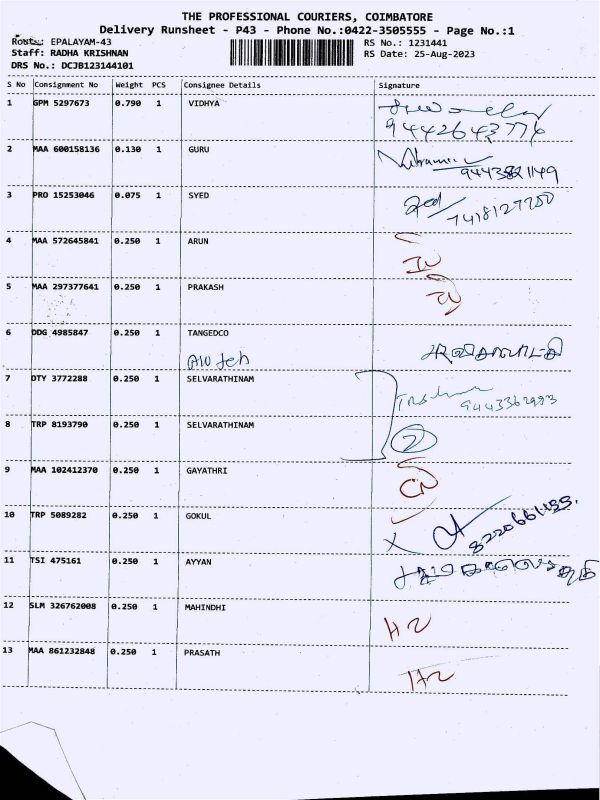 THE PROFESSIONAL COURIERS, COIMBATORE
Delivery Runsheet - P43 - Phone No.:0422-3505555 - Page No.:1
Route: EPALAYAM-43 RS No.: 1231441
Staff: RADHA KRISHNAN RS Date: 25-Aug-2023
DRS No.: DCJB123144101
S No Consignment No Weight PCS Consignee Details Signature
1 GPM 5297673 0.790 1 VIDHYA
9442643776
2 MAA 600158136 0.130 1 GURU
3 PRO 15253046 0.075 1 SYED
4 MAA 572645841 0.250 1 ARUN
5 MAA 297377641 0.250 1 PRAKASH
6 DDG 4985847 0.250 1 TANGEDCO
7 OTY 3772288 0.250 1 SELVARATHINAM
9443362993
8 TRP 8193790 0.250 1 SELVARATHINAM
2
9 MAA 102412370 0.250 1 GAYATHRI
10 TRP 5089282 0.250 1 GOKUL
X
11 TSI 475161 0.250 1 AYYAN
12 SLM 326762008 0.250 1 MAHINDHI
13 MAA 861232848 0.250 1 PRASATH